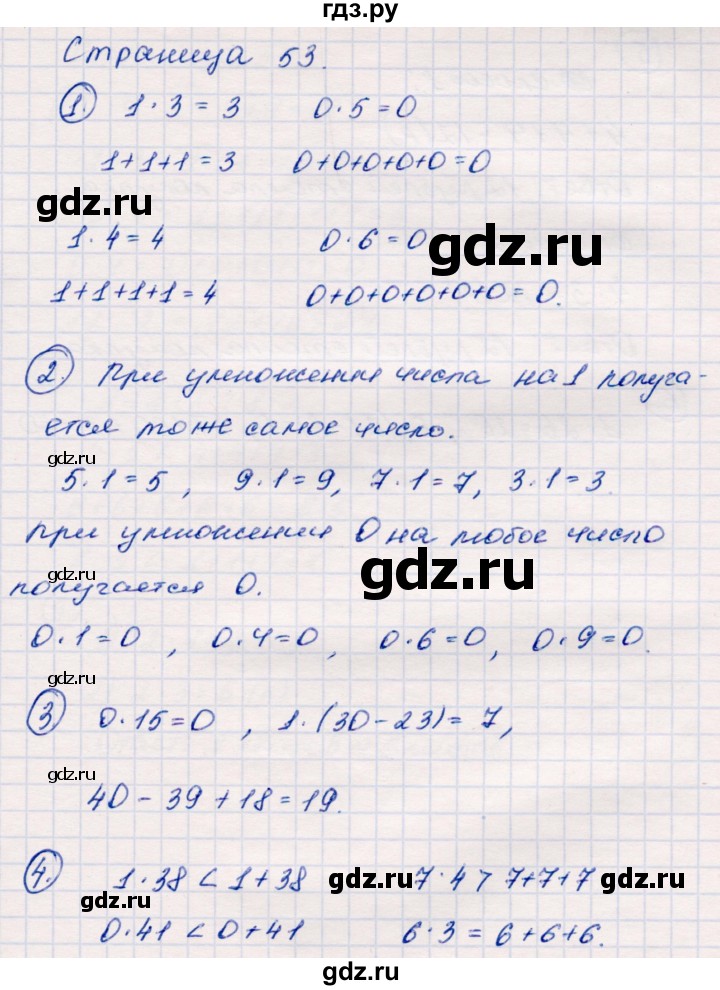 гдз.ру
Страница 53.
1. 1·3=3 0·5=0
1+1+1=3 0+0+0+0+0=0
gdz.ru
1·4=4 0·6=0 gdz.ru
1+1+1+1=4 0+0+0+0+0+0=0.
2. При умножении числа на 1 получа-
ется тоже самое число.
gdz.ru
5·1=5, 9·1=9, 7·1=7, 3·1=3
При умножении 0 на любое число
gdz.ru gdz.ru
получается 0.
0·1=0, 0·4=0, 0·6=0, 0·9=0.
gdz.ru
3 0·15=0, 1·(30-23)=7,
gdz.ru
40-39+18=19.
4. 1·38<1+38 gdz.ru 7·4>7+7+7 gdz.ru
gdz.ru
0·41<0+41 6·3=6+6+6.
gdz.ru